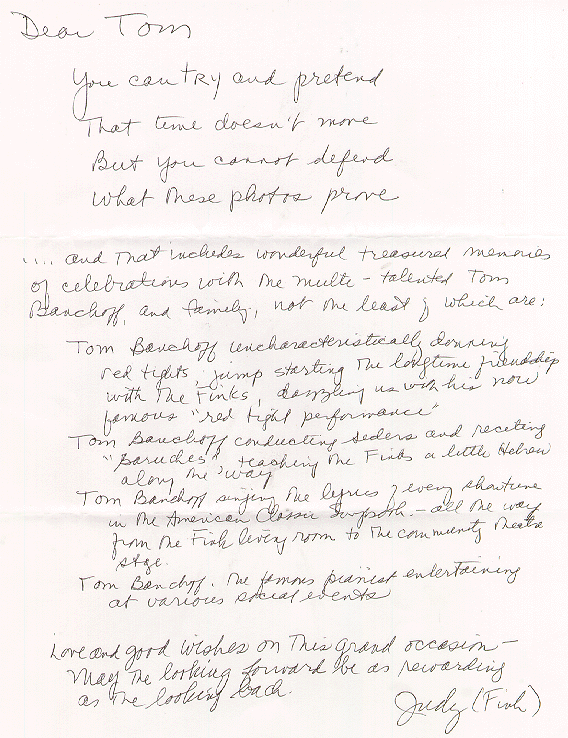 Dear Tom
You can try and pretend
That time doesn't move
But you cannot defend
What these photos prove
.... and that includes wonderful treasured memories
of celebrations with the multi-talented Tom
Banchoff, and family, not the least of which are:
Tom Banchoff uncharacteristically donning
red tights, jump starting the longtime friendship
with the Finks, dazzling us with his now
famous "red tight performance"
Tom Banchoff conducting seders and reciting
"Baruches" teaching the Finks a little Hebrew
along the way
Tom Banchoff singing the lyrics of every showtune
in the American Classic Songbook - all the way
from the Fink living room to the community theatre
stage.
Tom Banchoff. The famous pianist entertaining
at various social events
Love and good wishes on this grand occasion -
May the looking forward be as rewarding
as the looking back.
Judy (Fink)